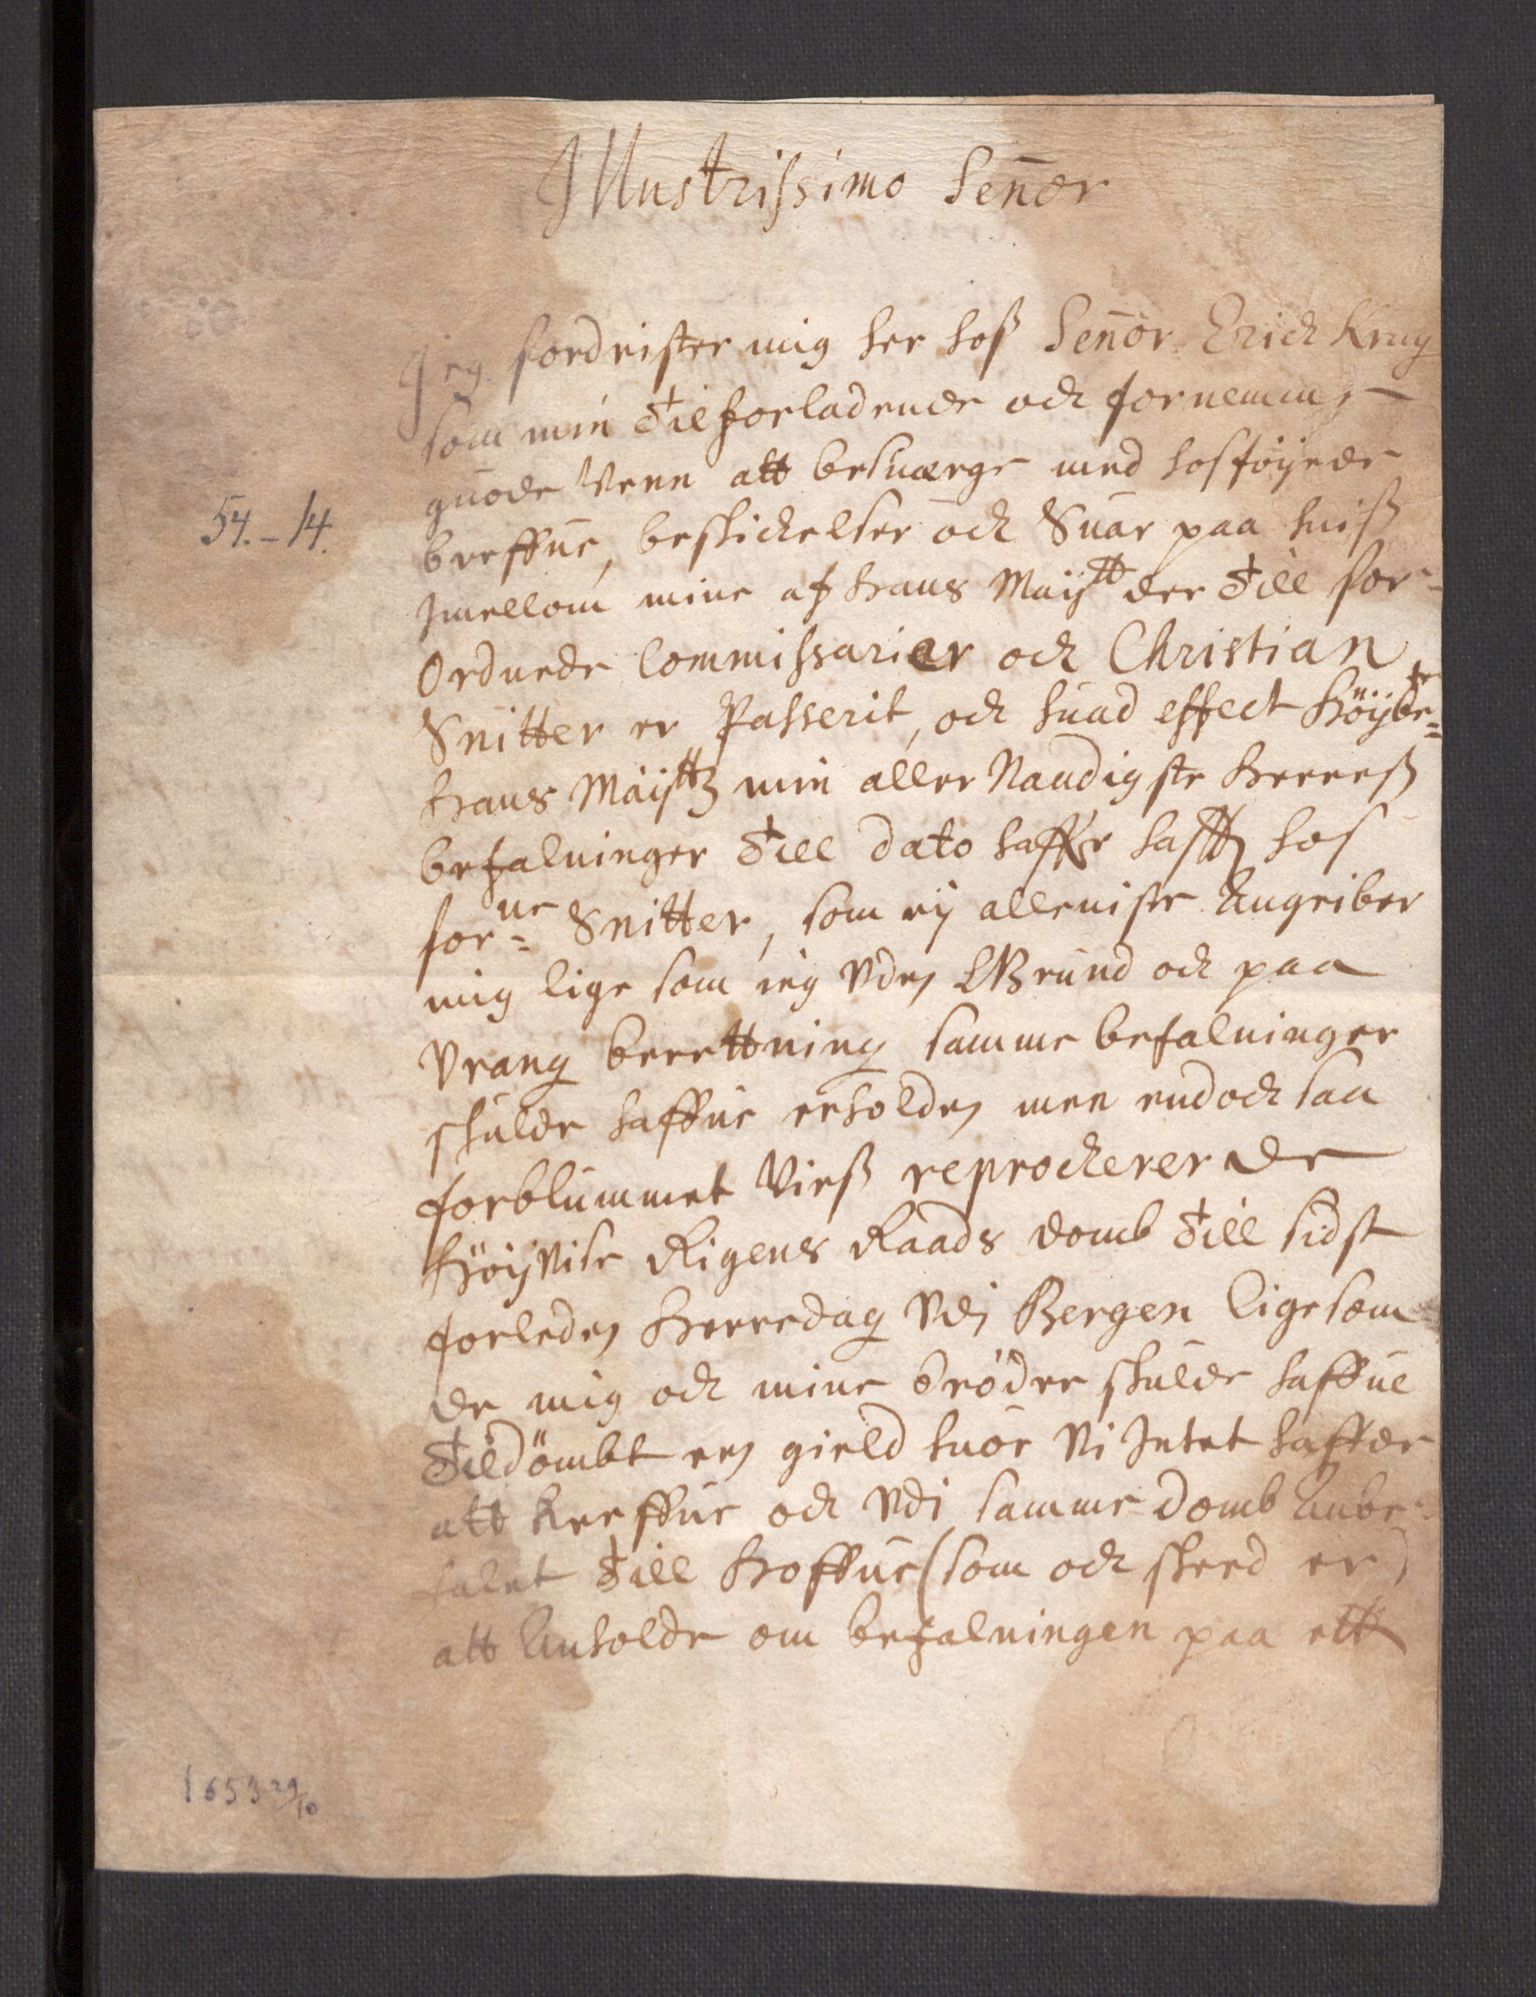 Illustrissimo Sen̄or
Jeg fordrister mig her hoß Sen̄or Erich Krag
som min Tilforladende och fornemmj
guode Venn att besuærge med hosföyede
breffue, beskickelser och Suar paa huiß
Jmellom mine af Hans Maÿtt der Till for=
Ordnede Commissarier och Christian
Snitter er Passerit, och huad effect Höÿbete=
Hans Maÿttz min aller Naadigste Herreß
befalninger Till dato haffr hafft hos
forne= Snitter, som eÿ alleniste Angriber
mig lige som ieg Vden Grund och paa
Vrang berettning samme befalninger
skulde haffue erholden men endoch saa
forblummet Viß reprocherer de
Höÿvise Rigens Raads domb Till sidst
forleden Herredag Vdj Bergen ligesom
de mig och mine brödre skulde haffue
Tildömbt een gield huor Vi Intet haffde
att kreffue och Vdi samme domb Anbe=
falet Till Hoffue (som och skeed er)
att Anholde om befalningen paa ett
54.-14.
1653 29/10